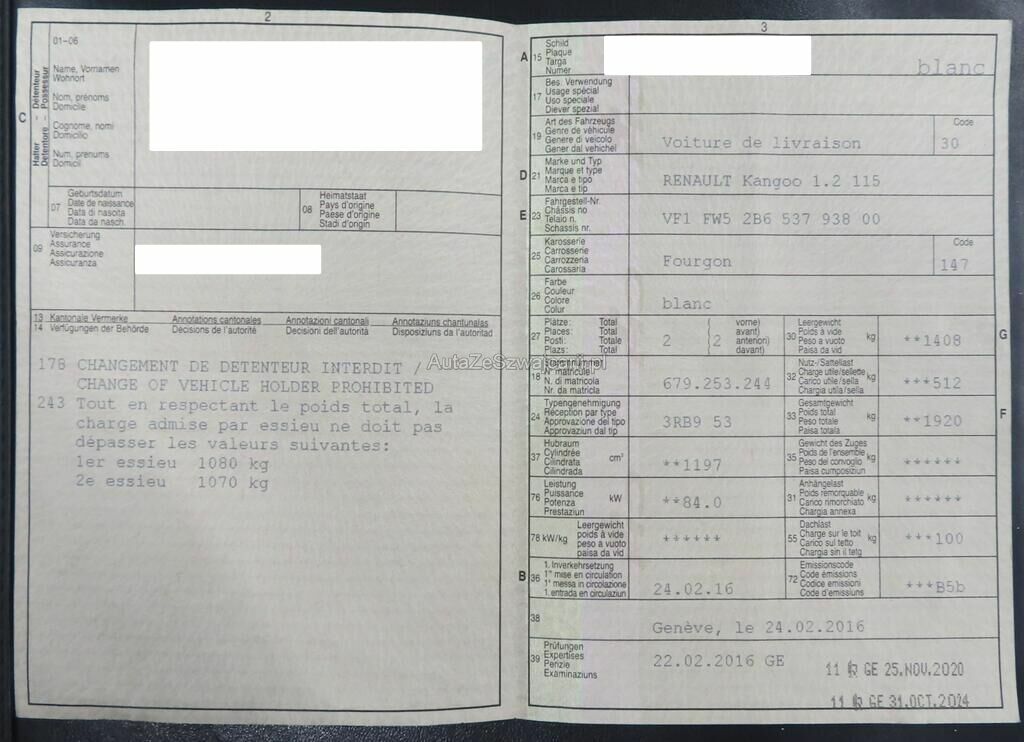 2
01-06
Name, Vornamen
Wohnort
Nom, prénoms
Domicile
Cognome, nomi
Domicilio
Num, prenums
Domicil
C
Halter – Détenteur
Detentore – Possessur
07
Geburtsdatum
Date de naissance
Data di nascita
Data da nasch.
08
Heimatstaat
Pays d'origine
Paese d'origine
Stadi d'origin
09
Versicherung
Assurance
Assicurazione
Assicuranza
13 Kantonale Vermerke Annotations cantonales Annotazioni cantonali Annotaziuns chantunalas
14 Verfügungen der Behörde Décisions de l'autorité Decisioni dell'autorità Disposiziuns da l'autoritad
178 CHANGEMENT DE DETENTEUR INTERDIT /
CHANGE OF VEHICLE HOLDER PROHIBITED
243 Tout en respectant le poids total, la
charge admise par essieu ne doit pas
dépasser les valeurs suivantes:
1er essieu 1080 kg
2e essieu 1070 kg
AutaZeSzwajcarii.pl
3
A 15
Schild
Plaque
Targa
Numer
blanc
17
Bes. Verwendung
Usage spécial
Uso speciale
Diever spezial
19
Art des Fahrzeugs
Genre de véhicule
Genere di veicolo
Gener dal vehichel
Voiture de livraison
Code
30
D 21
Marke und Typ
Marque et type
Marca e tipo
Marca e tip
RENAULT Kangoo 1.2 115
E 23
Fahrgestell-Nr.
Châssis no
Telaio n.
Schassis nr.
VF1 FW5 2B6 537 938 00
25
Karosserie
Carrosserie
Carrozzeria
Carossaria
Fourgon
Code
147
26
Farbe
Couleur
Colore
Colur
blanc
27
Plätze: Total
Places: Total
Posti: Totale
Plazs: Total
2
( vorne)
avant)
anteriori)
( davant)
2
30
Leergewicht
Poids à vide
Peso a vuoto
Paisa da vid
kg
**1408
G
18
N° matricule
N. di matricola
Nr. da matricla
679.253.244
32
Nutz-/Sattellast
Charge utile/sellette
Carico utile/sella
Chargia utila/sella
kg
***512
24
Typengenehmigung
Réception par type
Approvazione del tipo
Approvaziun dal tip
3RB9 53
33
Gesamtgewicht
Poids total
Peso totale
Paisa totala
kg
**1920
F
37
Hubraum
Cylindrée
Cilindrata
Cilindrada
cm³
**1197
35
Gewicht des Zuges
Poids de l'ensemble
Peso del convoglio
Paisa cumposiziun
kg
******
76
Leistung
Puissance
Potenza
Prestaziun
kW
**84.0
31
Anhängelast
Poids remorquable
Carico rimorchiato
Chargia annexa
kg
******
78 kW/kg
Leergewicht
poids à vide
peso a vuoto
paisa da vid
******
55
Dachlast
Charge sur le toit
Carico sul tetto
Chargia sin il tetg
kg
***100
B 36
1. Inverkehrsetzung
1re mise en circulation
1a messa in circolazione
1. entrada en circulaziun
24.02.16
72
Emissionscode
Code émissions
Codice emissioni
Code d'emissiuns
***B5b
38
Genève, le 24.02.2016
39
Prüfungen
Expertises
Perizie
Examinaziuns
22.02.2016 GE
11 GE 25.NOV.2020
11 GE 31.OCT.2024